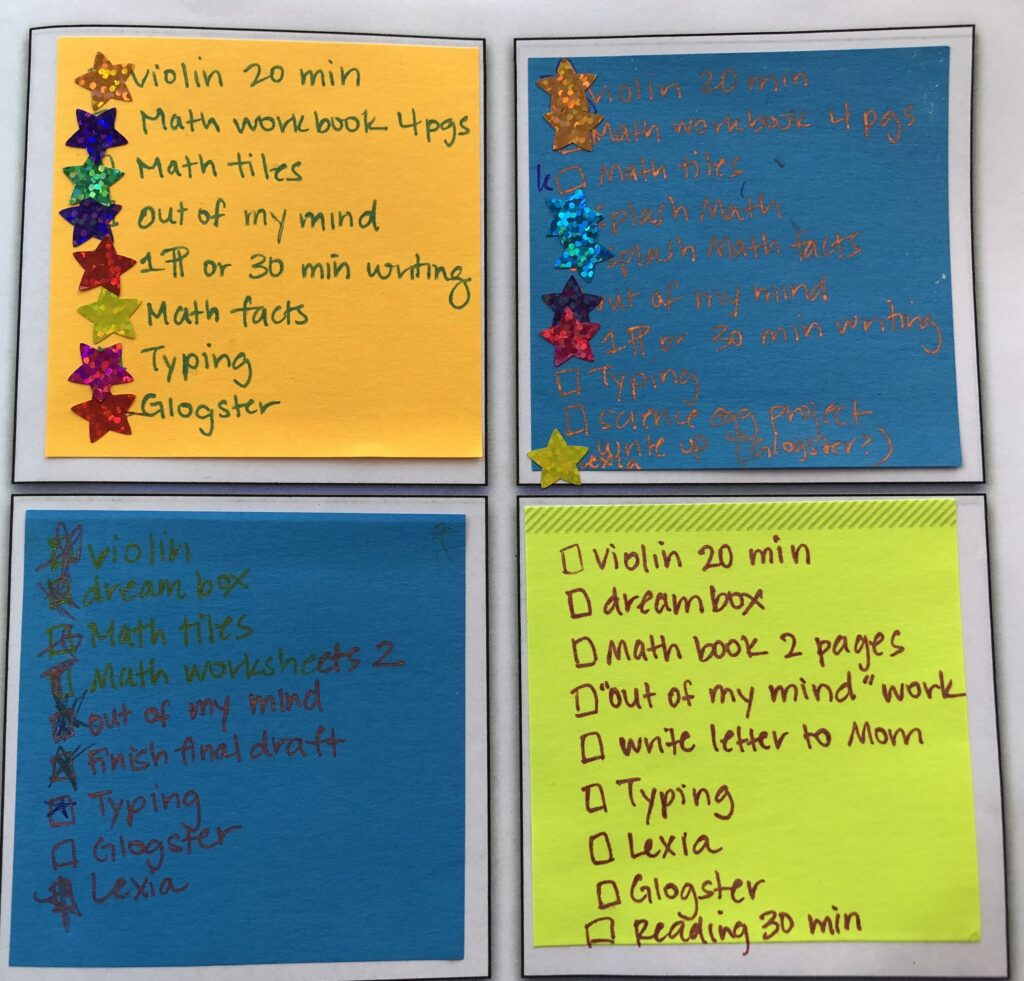 violin 20 min
Math workbook 4pgs
Math tiles
out of my mind
1¶ or 30 min writing
Math facts
Typing
Glogster
violin 20 min
Math workbook 4 pgs
k Math tiles
splash Math
splash Math facts
out of my mind
1¶ or 30 min writing
Typing
science egg project
write up (Glogster?)
Lexia
violin
dream box
Math tiles
Math worksheets 2
out of my mind
Finish final draft
Typing
Glogster
Lexia
violin 20 min
dreambox
Math book 2 pages
"out of my mind" work
write letter to Mom
Typing
Lexia
Glogster
Reading 30 min